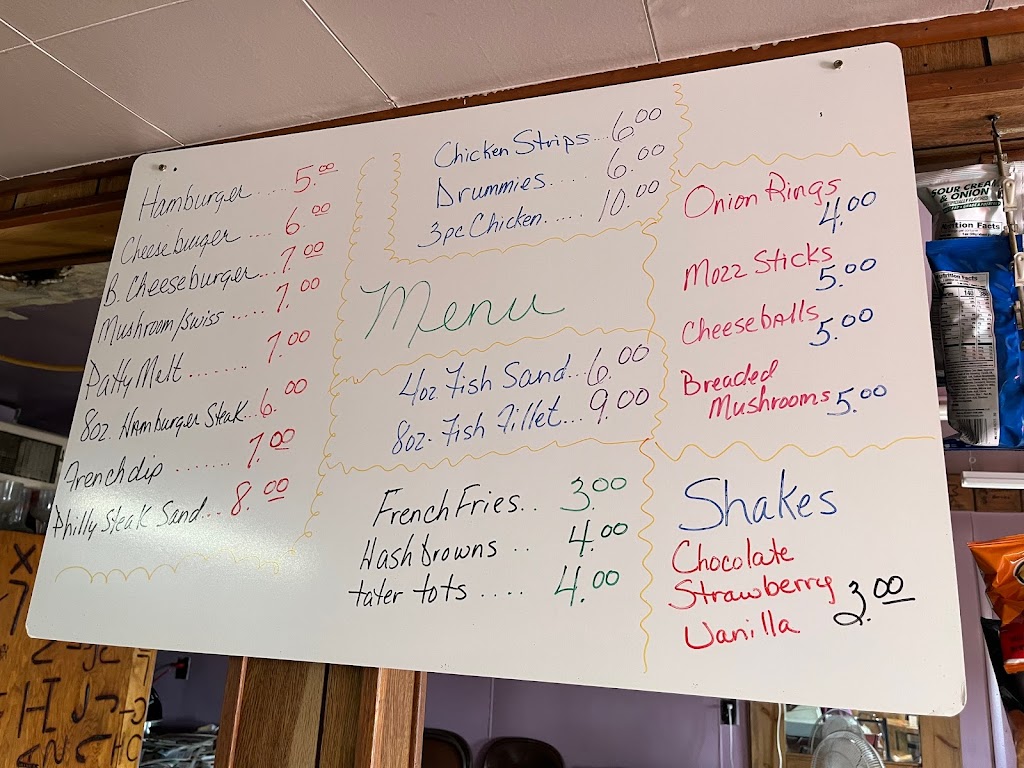 Hamburger ..... 5.00
Cheeseburger .... 6.00
B. Cheeseburger... 7.00
Mushroom/Swiss ..... 7.00
Patty Melt ........ 7.00
8oz. Hamburger Steak... 6.00
Frenchdip ....... 7.00
Philly Steak Sand... 8.00
Chicken Strips... 6.00
Drummies..... 6.00
3pc Chicken..... 10.00
Menu
4oz Fish Sand... 6.00
8oz. Fish Fillet... 9.00
French Fries.. 3.00
Hashbrowns .. 4.00
tater tots .... 4.00
Onion Rings
4.00
Mozz Sticks
5.00
Cheeseballs
5.00
Breaded
Mushrooms 5.00
Shakes
Chocolate
Strawberry 3.00
Vanilla
SOUR CREAM
& ONION
Nutrition Facts
Nutrition Facts
140